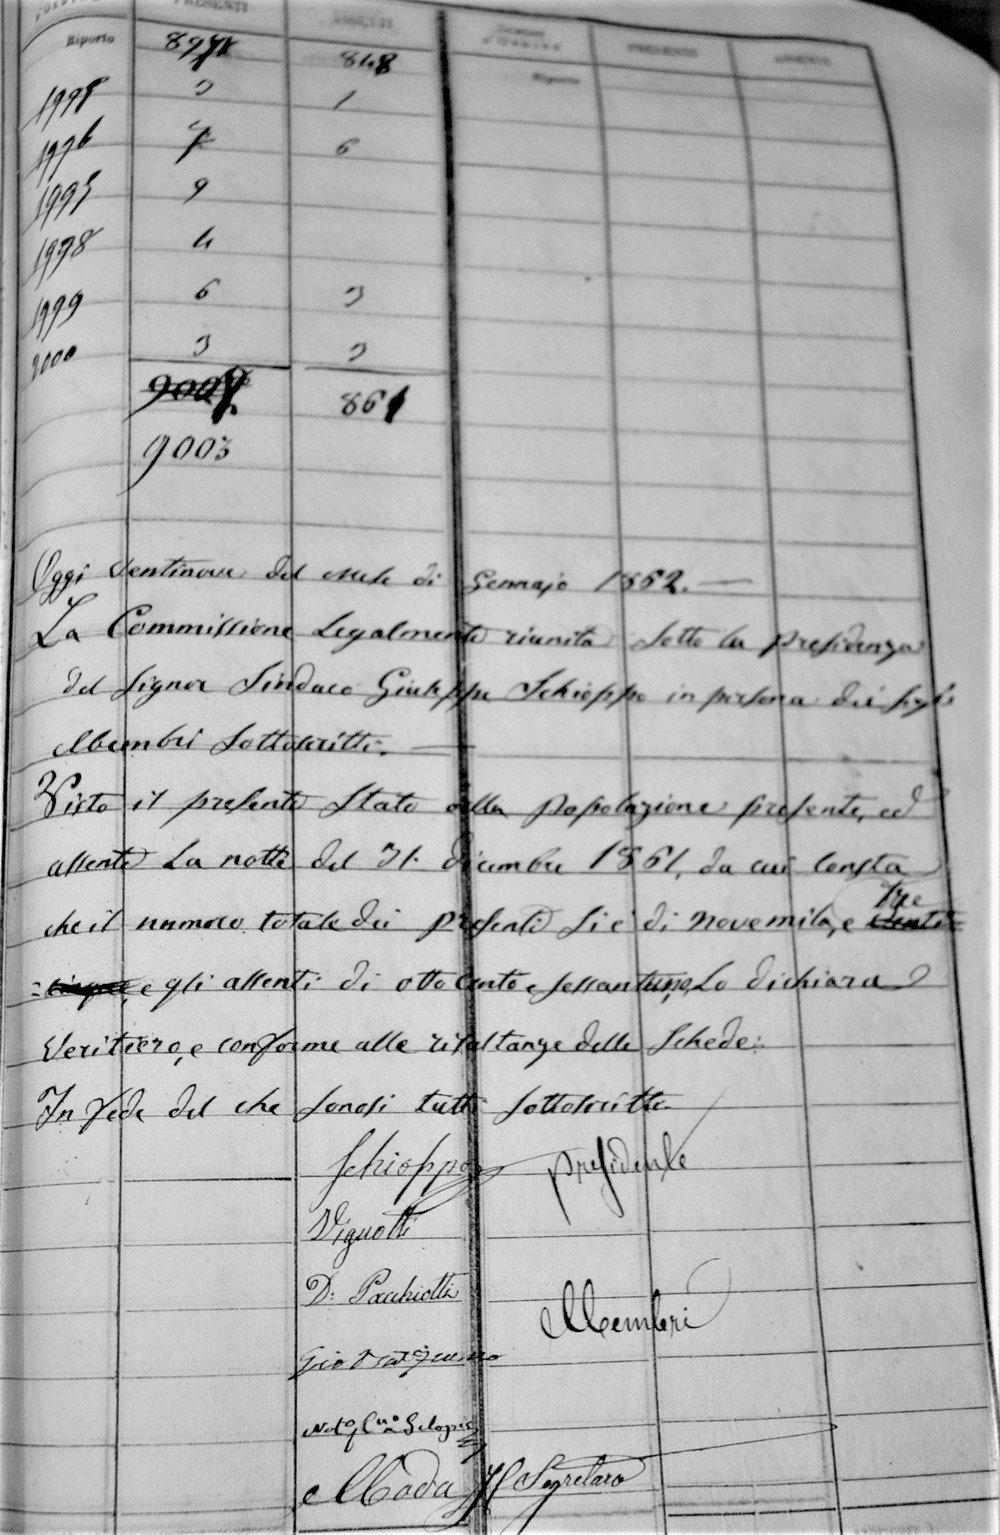 PRESENTI ASSENTI PRESENTI ASSENTI
Riporto 848 Riporto
1995 3 1
1996 6
1997 9
1998 4
1999 6 3
2000 3 3
861
9003
Oggi ventinove del mese di Gennajo 1862. —
La Commissione legalmente riunita sotto la presidenza
del Signor Sindaco Giuseppe Schioppo in persona dei
Membri sottoscritti. —
Visto il presente Stato della popolazione presente, ed
assente la notte del 31. Dicembre 1861, da cui consta
tre
che il numero totale dei presenti si è di novemila, e venti=
=cinque, e gli assenti di ottocento e sessantuno, Lo dichiara
veritiero, e conforme alle risultanze delle Schede:
In fede del che sonosi tutti sottoscritti.
Schioppo presidente
Vignotti
D: Pacchiotti
Membri
Moda Il Segretaro